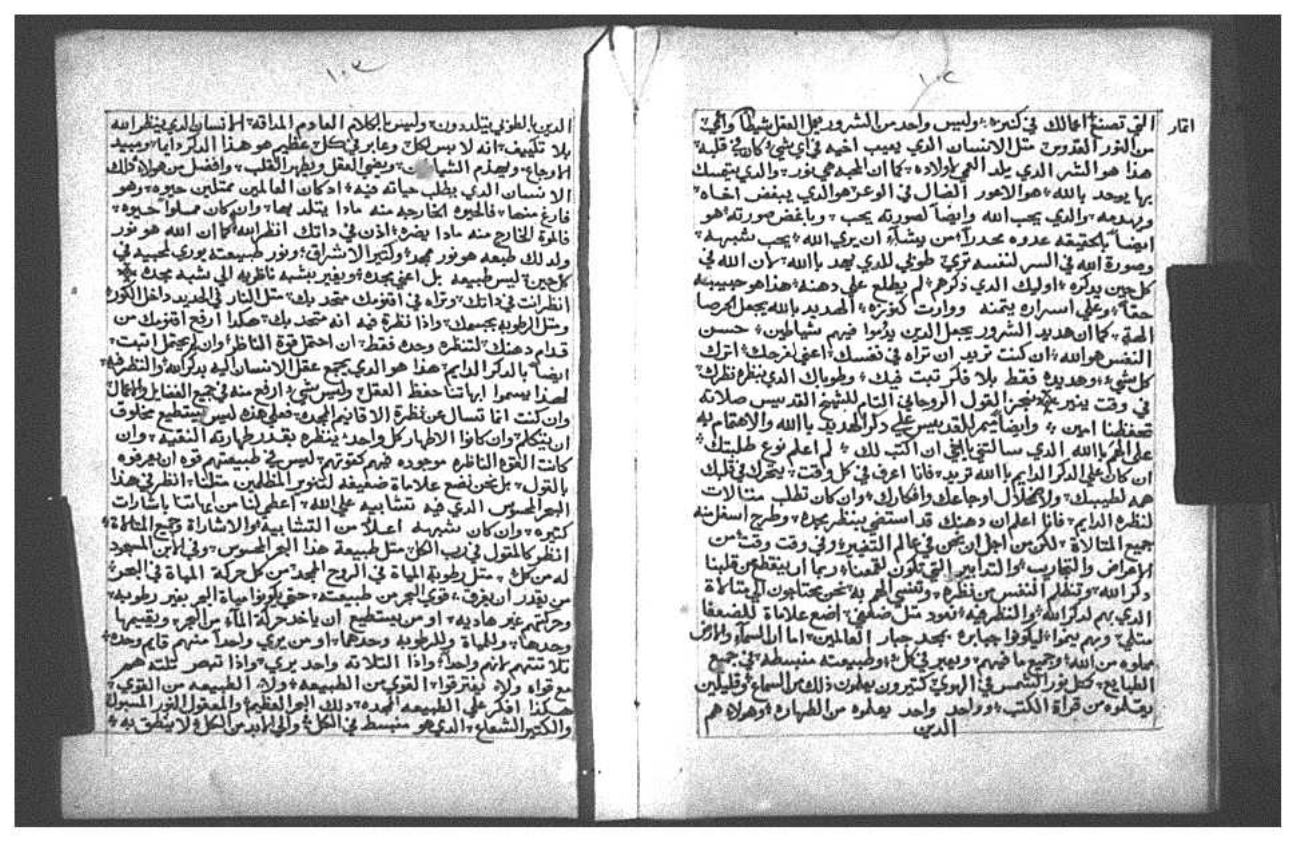 ١٠٢
اثمار
التي تصنع اعمالك في كنيزه وليس واحد من الشرور يجعل العقل شيطاً واعمي
من النور القدوس مثل الانسان الذي يعيب اخيه في اي شي كان في قلبه
هذا هو الشر الذي يلد العمي اولاده كما ان المحبه هي نور والذي يتمسك
بها يوحد بالله هو الاهور الضال في الوعر هو الذي يبغض اخاه
ويهدمه والذي يحب الله وايضاً لصورته يحب وباغض صورته هو
ايضاً بالحقيقه عدوه محدراً من يشاء ان يري الله يحب شبهه
وصورة الله في السر لنفسه تري طوبي للدي يهد باالله لان الله في
كل حين يدكره اوليك الدي دكرهم لم يطلع علي دهنه هذا هو حبيبه
حقاً وعلي اسراره يتمنه ووارت كنوزه الهديد بالله يجعل الحرصا
الهة كما ان هديد الشرور يجعل الدين يدوموا فيهم شياطين حسن
النفس هو الله ان كنت تريد ان تراه في نفسك اعني لفرحك اترك
كل شي وهديده فقط بلا فكر تبت فيك وطوباك الدي بنظره نظرك
في وقت ينير نجز القول الروحاني التام للشيخ القديس صلاته
تحفظنا امين وايضاً ميمر للقديس علي دكر الهديد باالله والاهتمام به
علي الهم باالله الدي سالتني يااخي ان اكتب لك لم اعلم نوع طلبتك
ان كان علي الدكر الدايم باالله تريد فانا اعرف في كل وقت يتحرك في قلبك
هد لطيبيك ولاضمحلال اوجاعك وافكارك وان كان تطلب متالات
لنظره الدايم فانا اعلم ان دهنك قد استضي بنظر مجده وطرح اسفل منه
جميع المتالاة لكن من اجل ان نحن في عالم التغيير وفي وقت وقت من
الامراض والتجاريب والتدابير التي تكون لقمعنا ربما ان ينقطع من قلبنا
دكر الله وتظلم النفس من نظره وتنسي الهم به نحن محتاجون الي متالاة
الدي بهم لدكر الله والنظر فيه نعود مثل ضعفي اضع علاماة للضعفا
متلي وبهم ينموا ليكونوا جبابره يمجد جبار العالمين اما ان السماء والارض
مملوه من الله وجميع ما فيهم ويعبر في كل وطبيعته منبسطه في جميع
الطبايع كمتل نور الشمس في الهوي كتيرون يعلمون ذلك من السماع وقليلين
يتعلموه من قراة الكتب وواحد واحد يعلموه من الطهاره وهولاء هم
الدين
١٠٣
الدين بالطوبي يتلددون وليس بالكلام العادم المداقه الانسان الدي ينظر الله
بلا تكييف انه لابس لكل وعابر في كل عظيم هو هذا الدكر دايما ومبيد
الاوجاع ويهدم الشياطين ويضي العقل ويطهر القلب وافضل من هولاء ذلك
الانسان الدي يطلب حياته فيه ادكان العالمين ممتلين حيوه وهو
فارغ منها فالحيوه الخارجه منه مادا يتلد بها وان كان مملوا حيوه
فالموة الخارج منه مادا يضره اذن في داتك انظر الله كما ان الله هو نور
ولدلك طبعه هو نور مجد وكتير الاشراق ونور طبيعته يوري لمحبيه في
كل حين ليس طبيعه بل اعني مجده ويغير بشبه ناظريه الي شبه مجده
انظر انت في داتك وتراه في اقنومك متحد بك مثل النار في الحديد داخل الكور
ومتل الرطوبه بجسمك واذا نظرة فيه انه متحد بك هكدا ارفع اقنومك من
قدام دهنك لتنظره وحده فقط ان احتمل قوة الناظر وان لم يحتمل اتبت
ايضاً بالدكر الدايم هذا هو الدي يجمع عقل الانسان اليه بدكر الله والنظر فيه
لهدا يسموا ابهاتنا حفظ العقل وليس شي ارفع منه في جميع الفضايل والاعمال
وان كنت انما تسال عن نظرة الاقانيم المجده فعلي هذه ليس يستطيع مخلوق
ان يتكلم وان كانوا الاطهار كل واحد ينظره بقدر طهارته النقيه وان
كانت القوه الناظره موجوده فيهم كقوتهم ليس في طبيعتهم قوه ان يعرفوه
بالقول بل نحن نضع علاماة ضعيفه لتنوير المظلمين متلنا انظر في هذا
البحر المحسوس الدي فيه تشابيه علي الله اعطي لنا من ابهاتنا باشارات
كتيره وان كان شبهه اعلا من التشابيه والاشاراة وجميع المتالاة
انظر كالمقول في رب الكل مثل طبيعة هذا البحر المحسوس وفي الابن المسجود
له من كل متل رطوبة المياة في الروح المجد من كل حركة المياة في البحر
من يقدر ان يفرق قوي البحر من طبيعته حتي يكونوا مياة البحر بغير رطوبه
وحركتهم غير هاديه او من يستطيع ان ياخد حركة الماء من البحر ويقسمها
وحدها وللمياة وللرطوبه وحدهما او من يري واحداً منهم قايم وحده
تلاتتهم لانهم واحد واذا التلاته واحد يري واذا تبصر تلتتهم
مع قواه ولا يفترقوا القوي من الطبيعه ولا الطبيعه من القوي
هكدا افكر علي الطبيعه المجده دلك البحر العظيم والمعقول النور المسبوك
والكتير الشعاع الدي هو منبسط في الكل والي الابد من الكل لا ينطق به